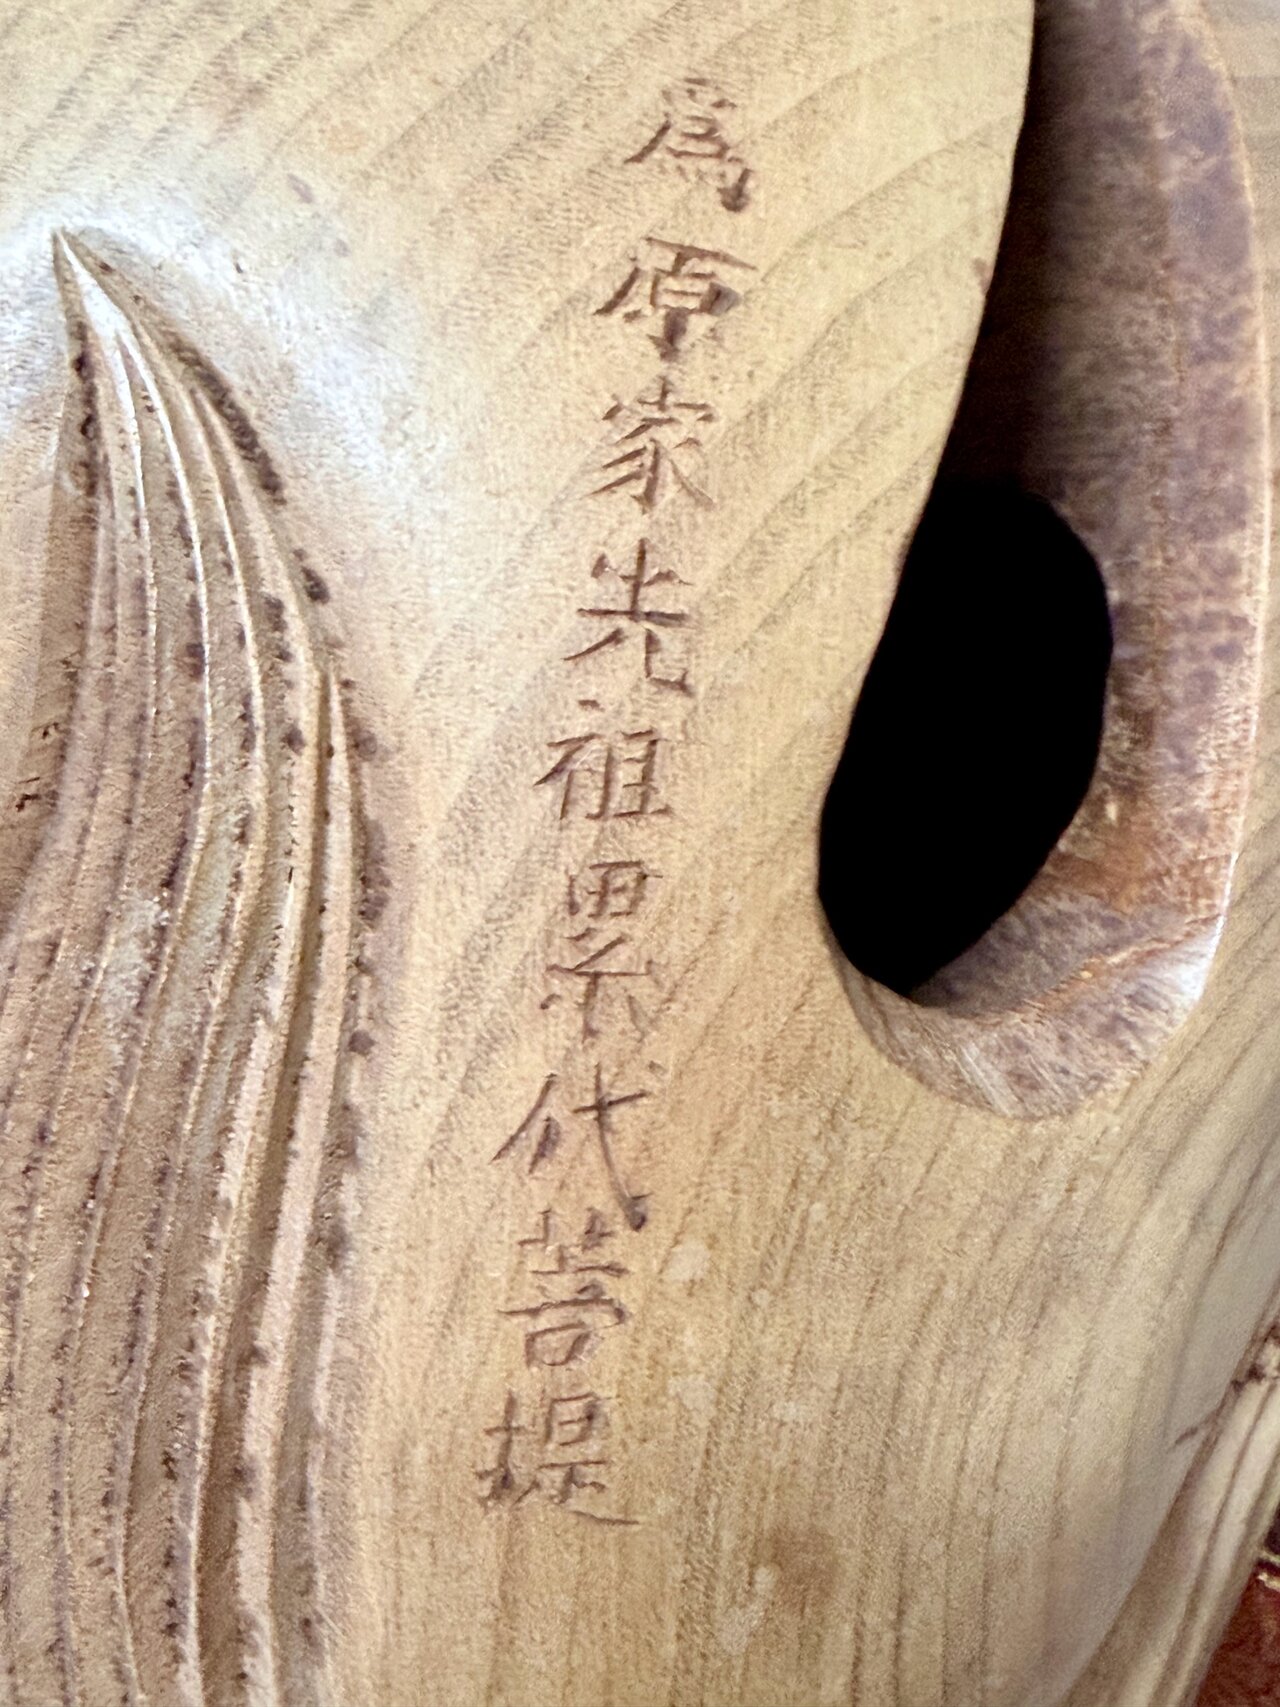 爲原家先祖累代菩提